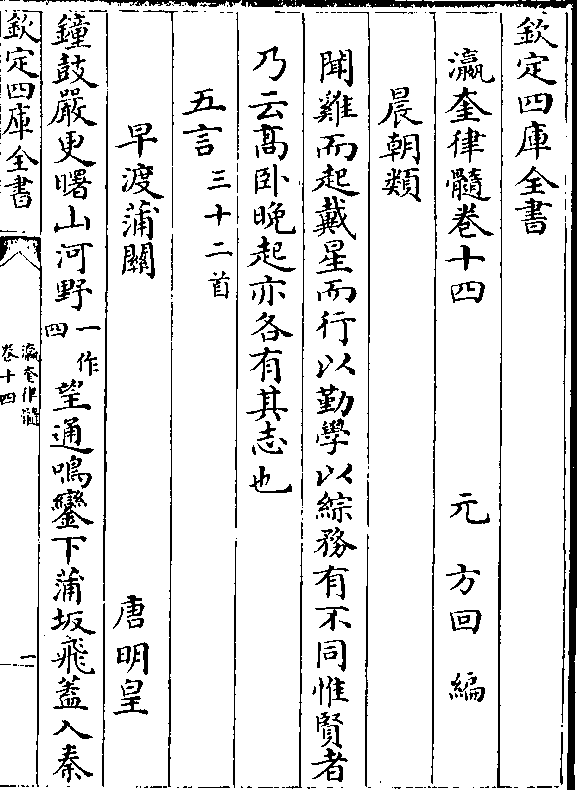 欽定四庫全書
瀛奎律髓卷十四　元　方回　編
晨朝類
聞雞而起戴星而行以勤學以綜務有不同惟賢者
乃云髙卧晚起亦各有其志也
五言三十二首
早渡蒲關　唐明皇
鐘鼓嚴更曙山河野一作四望通鳴鑾下蒲坂飛蓋入秦
欽定四庫全書
瀛奎律髓
卷十四
一